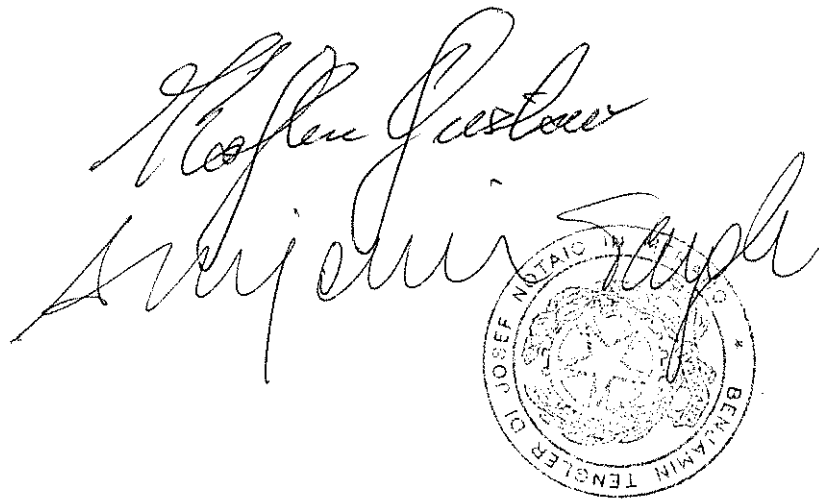 Gustav
Benjamin Tengler
BENJAMIN TENGLER DI JOSEF NOTAIO IN